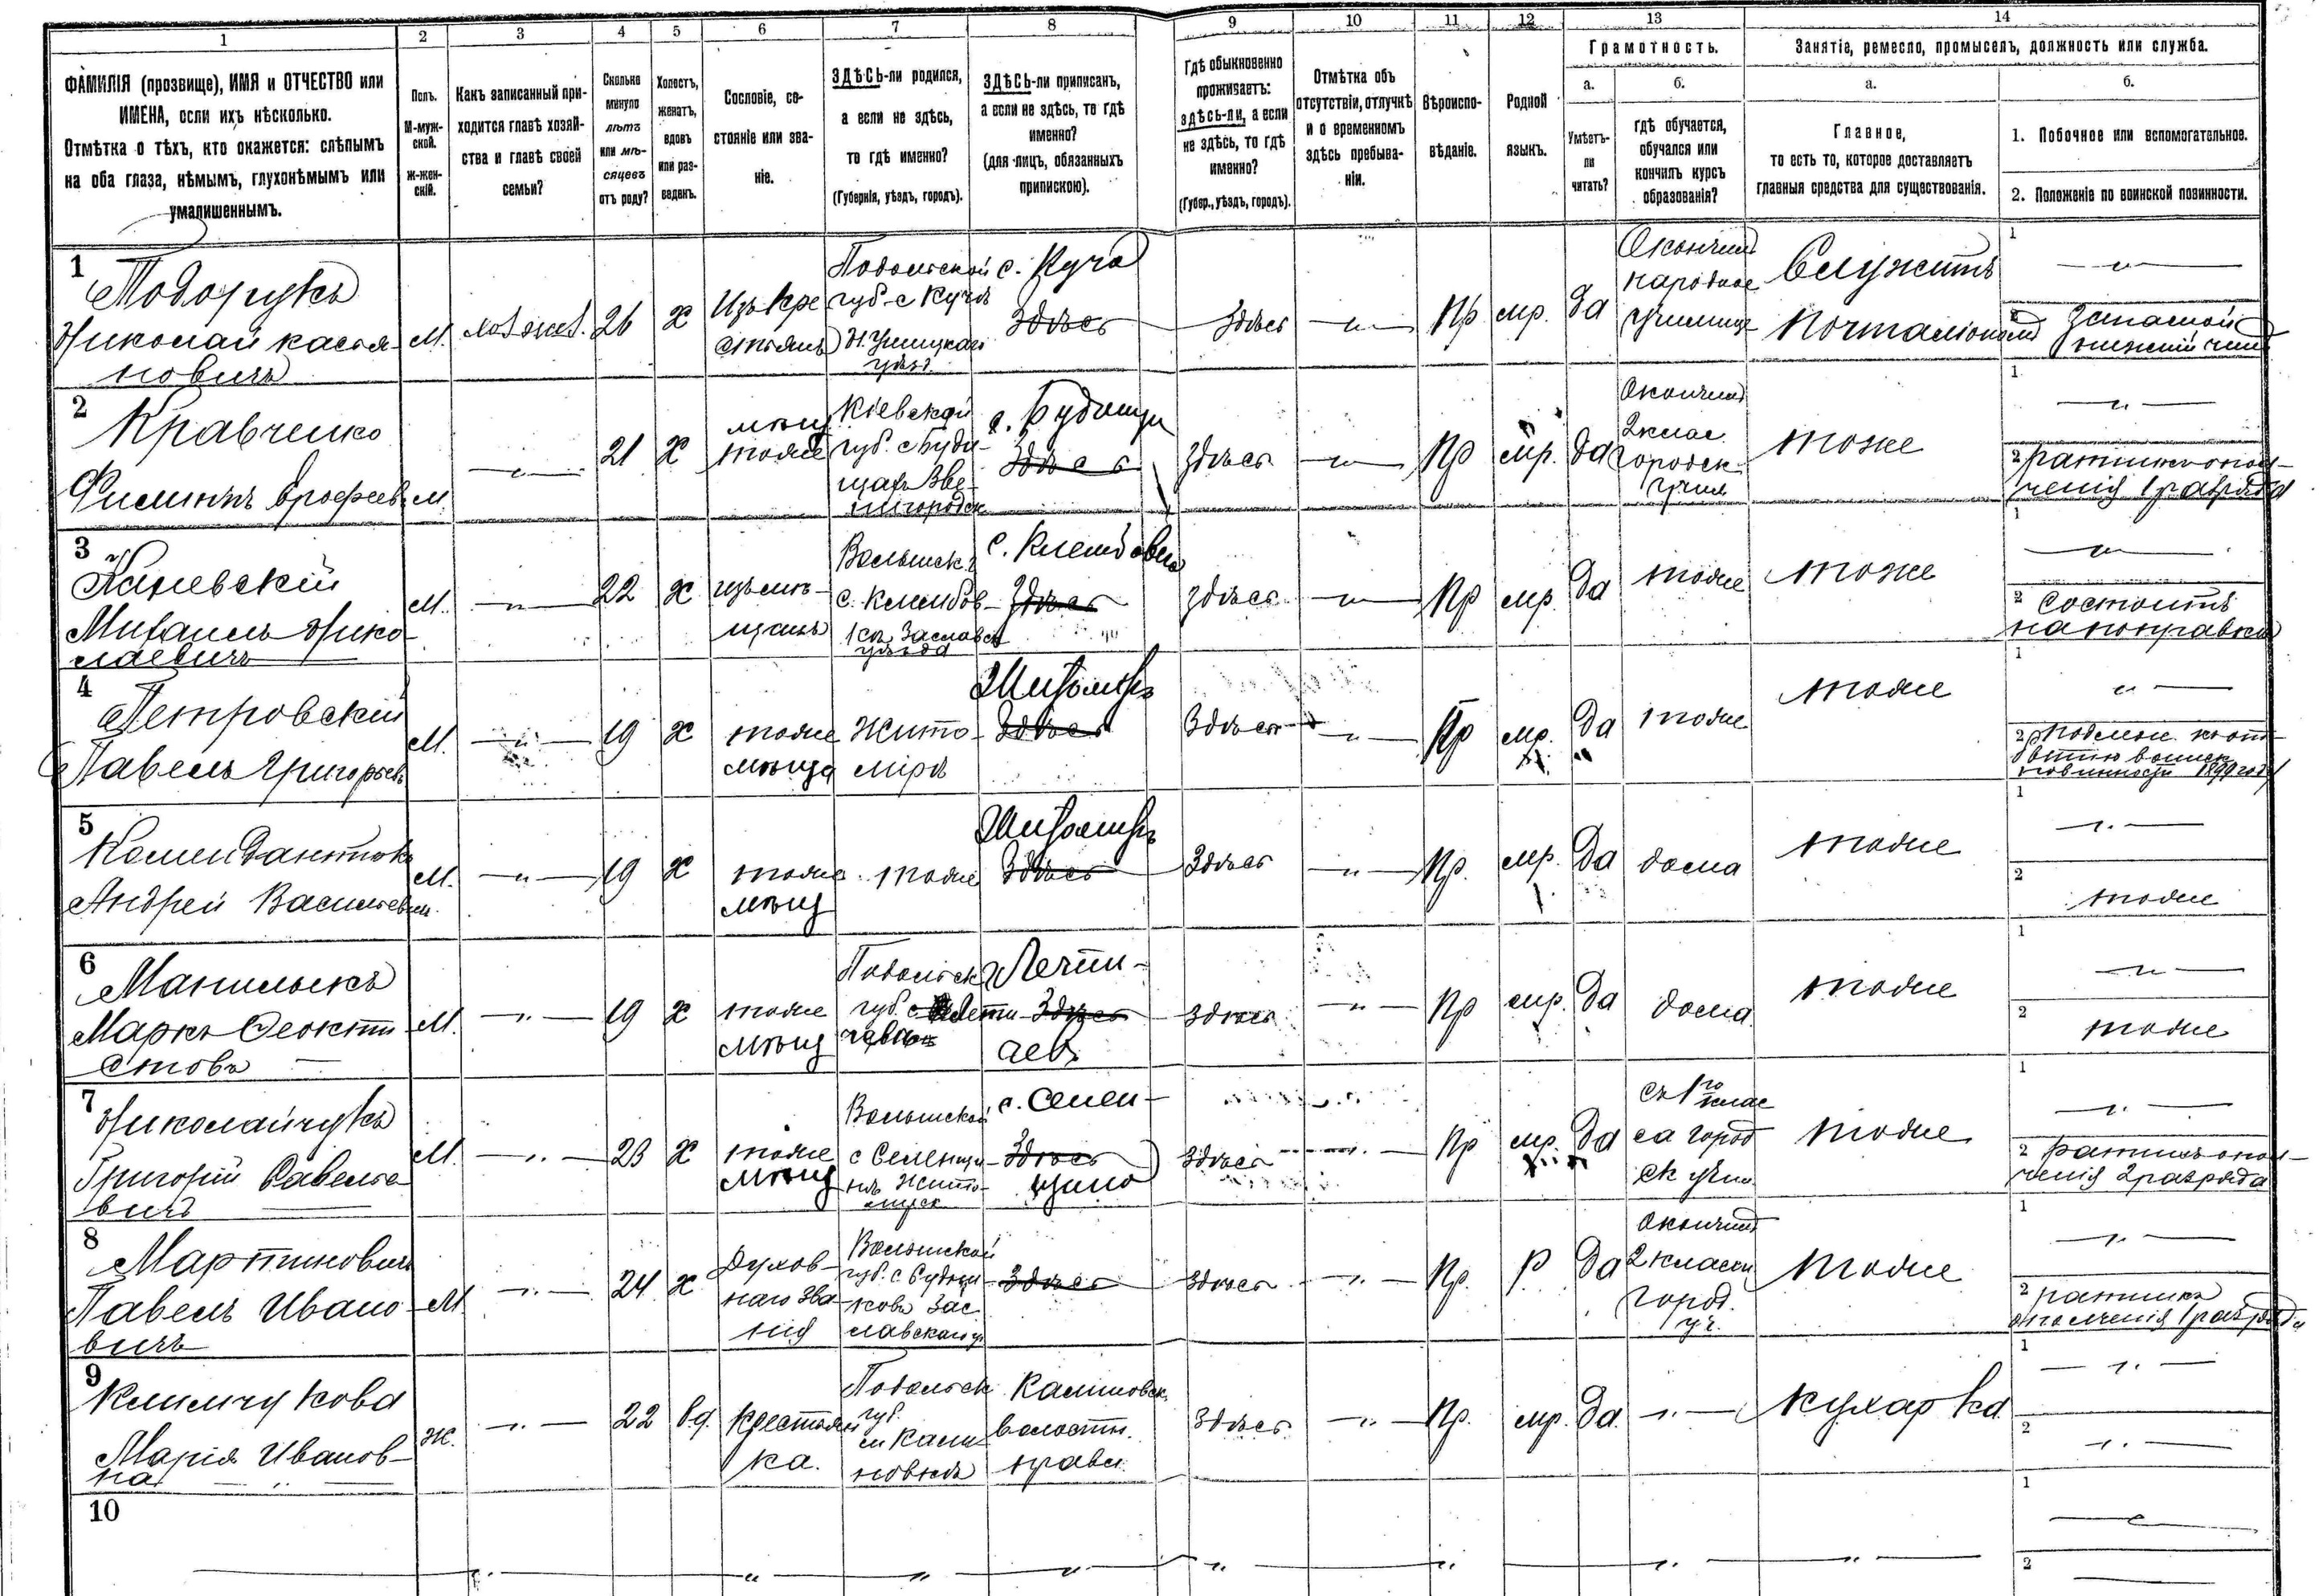 1 2 3 4 5 6 7 8 9 10 11 12 13 14
ФАМИЛІЯ (прозвище), ИМЯ и ОТЧЕСТВО или
ИМЕНА, если ихъ нѣсколько.
Отмѣтка о тѣхъ, кто окажется: слѣпымъ
на оба глаза, нѣмымъ, глухонѣмымъ или
умалишеннымъ.
Полъ.
М-муж-
ской.
Ж-жен-
скій.
Какъ записанный при-
ходится главѣ хозяй-
ства и главѣ своей
семьи?
Сколько
минуло
лѣтъ
или мѣ-
сяцевъ
отъ роду?
Холостъ,
женатъ,
вдовъ
или раз-
веденъ.
Сословіе, со-
стояніе или зва-
ніе.
ЗДѢСЬ-ли родился,
а если не здѣсь,
то гдѣ именно?
(Губернія, уѣздъ, городъ).
ЗДѢСЬ-ли приписанъ,
а если не здѣсь, то гдѣ
именно?
(для лицъ, обязанныхъ
припискою).
Гдѣ обыкновенно
проживаетъ:
здѣсь-ли, а если
не здѣсь, то гдѣ
именно?
(Губер., уѣздъ, городъ).
Отмѣтка объ
отсутствіи, отлучкѣ
и о временномъ
здѣсь пребыва-
ніи.
Вѣроиспо-
вѣданіе.
Родной
языкъ.
Грамотность.
а.
Умѣетъ-
ли
читать?
б.
гдѣ обучается,
обучался или
кончилъ курсъ
образованія?
Занятіе, ремесло, промыселъ, должность или служба.
а.
Главное,
то есть то, которое доставляетъ
главныя средства для существованія.
б.
1. Побочное или вспомогательное.
2. Положеніе по воинской повинности.
1
Тодорукъ
Николай касья-
новичъ
М.
26
х
Изъ кре
стьянъ
Подольской
губ. с Куча
Н. Ушицкаго
уѣзд
с. Куча
Здѣсь
Здѣсь
Пр
мр.
да
Окончил
народное
училище
Служитъ
Почталіоном
1
2 Запасной
нижній чин
2
Кравченко
Филиппъ Ерофеев
М.
21
х
мѣщ
тоже
Кіевской
губ. с Буди-
щах Зве-
нигородск
с. Будищи
Здѣсь
здѣсь
Пр
мр.
да
Окончил
2 клас.
городск
учил
тоже
1
2 ратник опол-
ченія 1 разряда
3
Каневскій
Михаилъ Нико-
лаевичъ
М.
22
х
изъ мѣ-
щанъ
Волынск.
с. Клембов-
Заславск
уѣзда
с. Клембовка
Здѣсь
здѣсь
Пр
мр.
да
тоже
тоже
1
2 состоитъ
на поправке
4
Петровскій
Павелъ Григорьев
М.
19
х
тоже
мѣща
Жито-
мірѣ
Житомір
Здѣсь
Здѣсь
Пр
мр.
да
тоже
тоже
1
2 подлеж. к от
бытію воинск
повинности 1899 году
5
Комендантюк
Андрей Васильевич.
М.
19
х
тоже
мѣщ
тоже
Житомір
Здѣсь
Здѣсь
Пр.
мр.
да
дома
тоже
1
2
тоже
6
Манилыкъ
Маркъ Феокти
стовъ
М.
19
х
тоже
мѣщ
Подольск
губ. с Лети
чевка
Летти-
Здѣсь
чев
здѣсь
Пр
мр.
да
дома
тоже
1
2
тоже
7
Николайчукъ
Григорій Савелье
вичъ
М.
23
х
тоже
мѣщ
Волынской
с Селенщи-
нѣ Жито-
мірск
с. Селен-
Здѣсь
щино
здѣсь
Пр
мр.
да
съ 1го клас
са город
ск учил
тоже
1
2 ратник опол-
ченія 2 разряда
8
Мартиновичъ
Павелъ Ивано-
вичъ
М
24
х
Духов-
наго зва-
нія
Волынской
губ. с Судил
ковъ Зас
лавскаго у
Здѣсь
здѣсь
Пр.
Р
да
Окончил
2 классн
город.
уч.
тоже
1
2 ратникъ
ополченія 1 разряда
9
Климчукова
Марія Иванов-
на
Ж.
22
вд.
Крестьян
ка.
Подольск
губ.
м Кали-
новкѣ
Калиновск.
волостн.
правл.
здѣсь
Пр.
мр.
да
кухарка
1
2
10
1
2